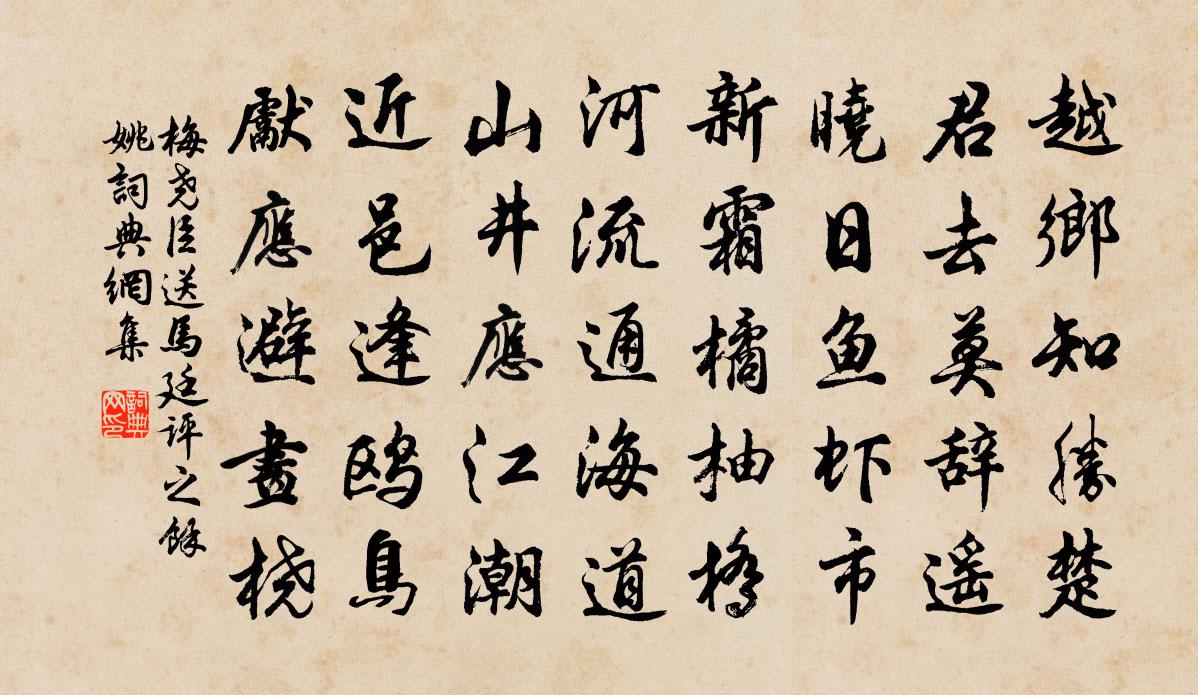 越鄉知勝楚
君去莫辞遥
曉日鱼虾市
新霜橘柚橋
河流通海道
山井應江潮
近邑逢鸥鳥
獻應避畫桡
梅尧臣送馬廷評之餘
姚詞典網集
詞典
网印